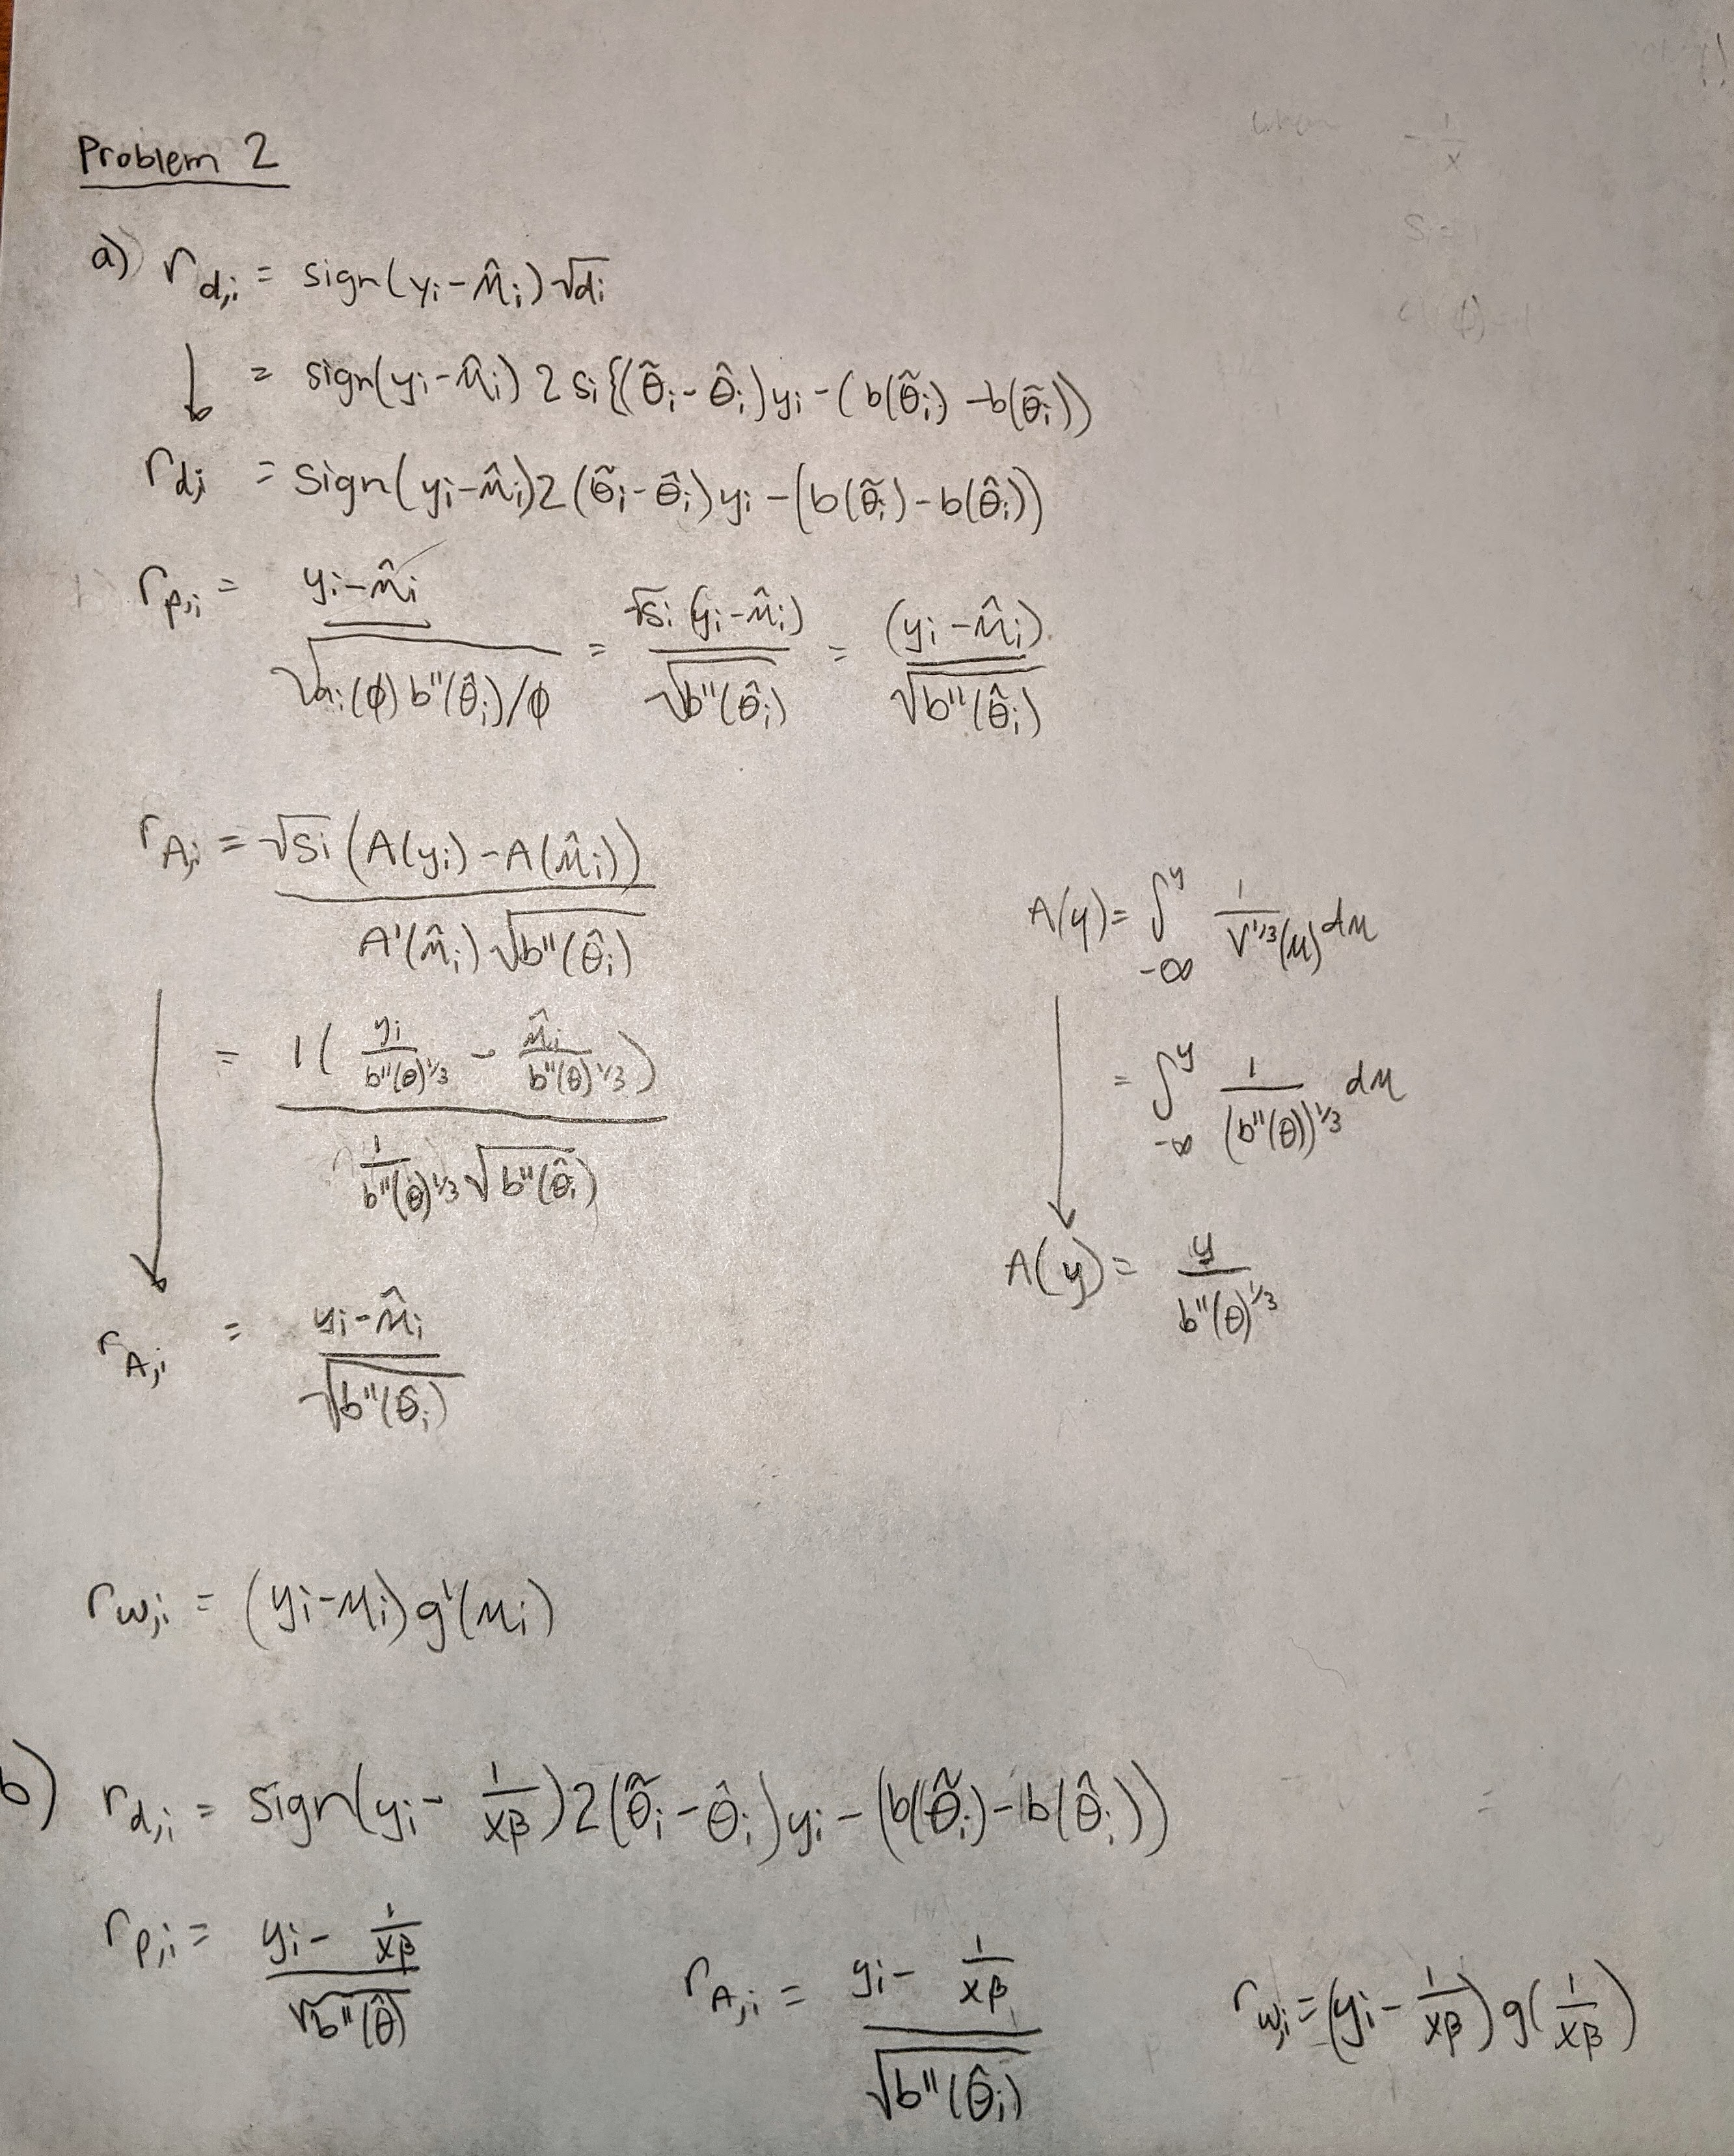 Problem 2
a) r_{d,i} = sign(y_i - μ̂_i) √d_i
= sign(y_i - μ̂_i) 2 s_i{(θ̃_i - θ̂_i)y_i - (b(θ̃_i) - b(θ̃_i))
r_{di} = sign(y_i - μ̂_i) 2 (θ̃_i - θ̂_i)y_i - (b(θ̃_i) - b(θ̂_i))
r_{p,i} = (y_i - μ̂_i) / √(a_i(φ) b''(θ̂_i)/φ) = √s_i (y_i - μ̂_i) / √b''(θ̂_i) = (y_i - μ̂_i) / √b''(θ̂_i)
r_{A,i} = √s_i (A(y_i) - A(μ̂_i)) / A'(μ̂_i) √b''(θ̂_i)
= 1( y_i / b''(θ)^{1/3} - μ̂_i / b''(θ)^{1/3} ) / (1 / b''(θ)^{1/3}) √b''(θ̂_i)
r_{A,i} = y_i - μ̂_i / √b''(θ̂_i)
A(y) = ∫_{-∞}^{y} 1 / V^{1/3}(μ) dμ
= ∫_{-∞}^{y} 1 / (b''(θ))^{1/3} dμ
A(y) = y / b''(θ)^{1/3}
r_{w,i} = (y_i - μ_i) g'(μ_i)
b) r_{d,i} = sign(y_i - 1/xβ) 2(θ̃_i - θ̂_i)y_i - (b(θ̃_i) - b(θ̂_i))
r_{p,i} = y_i - 1/xβ / √b''(θ̂)
r_{A,i} = y_i - 1/xβ / √b''(θ̂_i)
r_{w,i} = (y_i - 1/xβ) g(1/xβ)